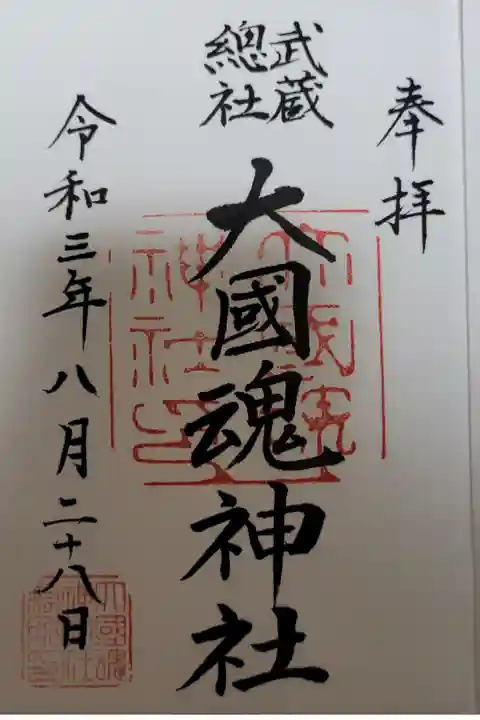 奉拝
武蔵
總社
大國魂神社
令和三年八月二十八日